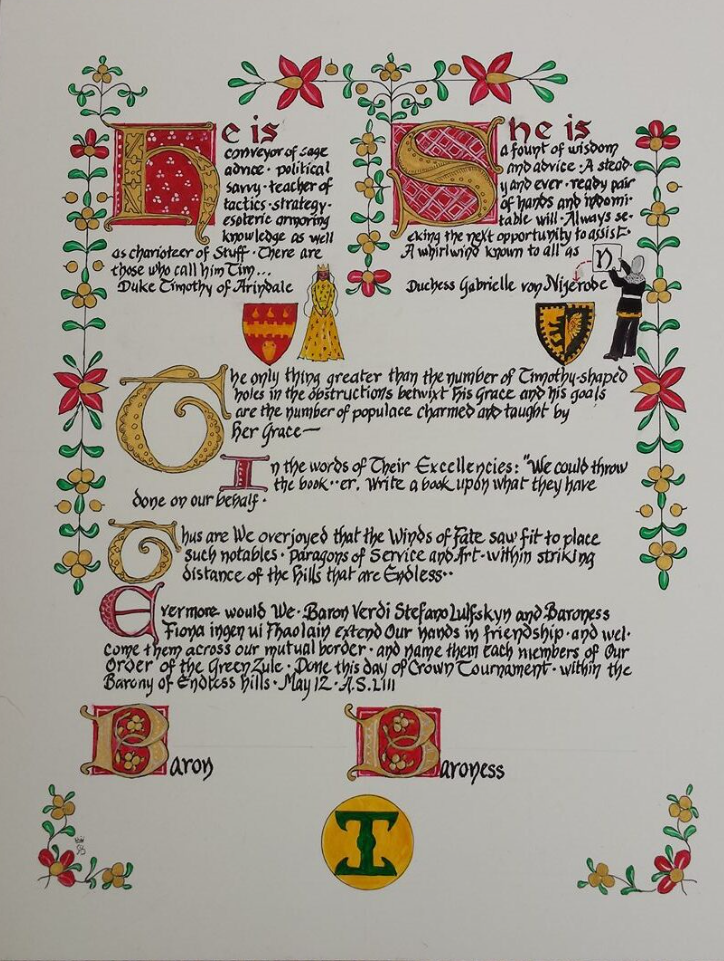 He is
conveyor of sage
advice · political
savvy · teacher of
tactics · strategy ·
esoteric armoring
knowledge as well
as charioteer of Stuff · There are
those who call him Tim...
Duke Timothy of Arindale
She is
a fount of wisdom
and advice · A stead-
y and ever-ready pair
of hands and indomi-
table will · Always se-
eking the next opportunity to assist ·
A whirlwind known to all as
Duchess Gabrielle von Nijerobe
n
The only thing greater than the number of Timothy-shaped
holes in the obstructions betwixt His Grace and his goals
are the number of populace charmed and taught by
Her Grace—
In the words of Their Excellencies: "We could throw
the book··er. Write a book upon what they have
done on our behalf ·
Thus are We overjoyed that the Winds of Fate saw fit to place
such notables · paragons of Service and Art · within striking
distance of the Hills that are Endless··
Evermore would We · Baron Verdi Stefano Lulfskyn and Baroness
Fiona ingen ui Fhaolain extend Our hands in friendship · and wel-
come them across our mutual border · and name them each members of Our
Order of the Green Zule · Done this day of Crown Tournament · within the
Barony of Endless Hills · May 12 · A.S. LIII
Baron
Baroness
I